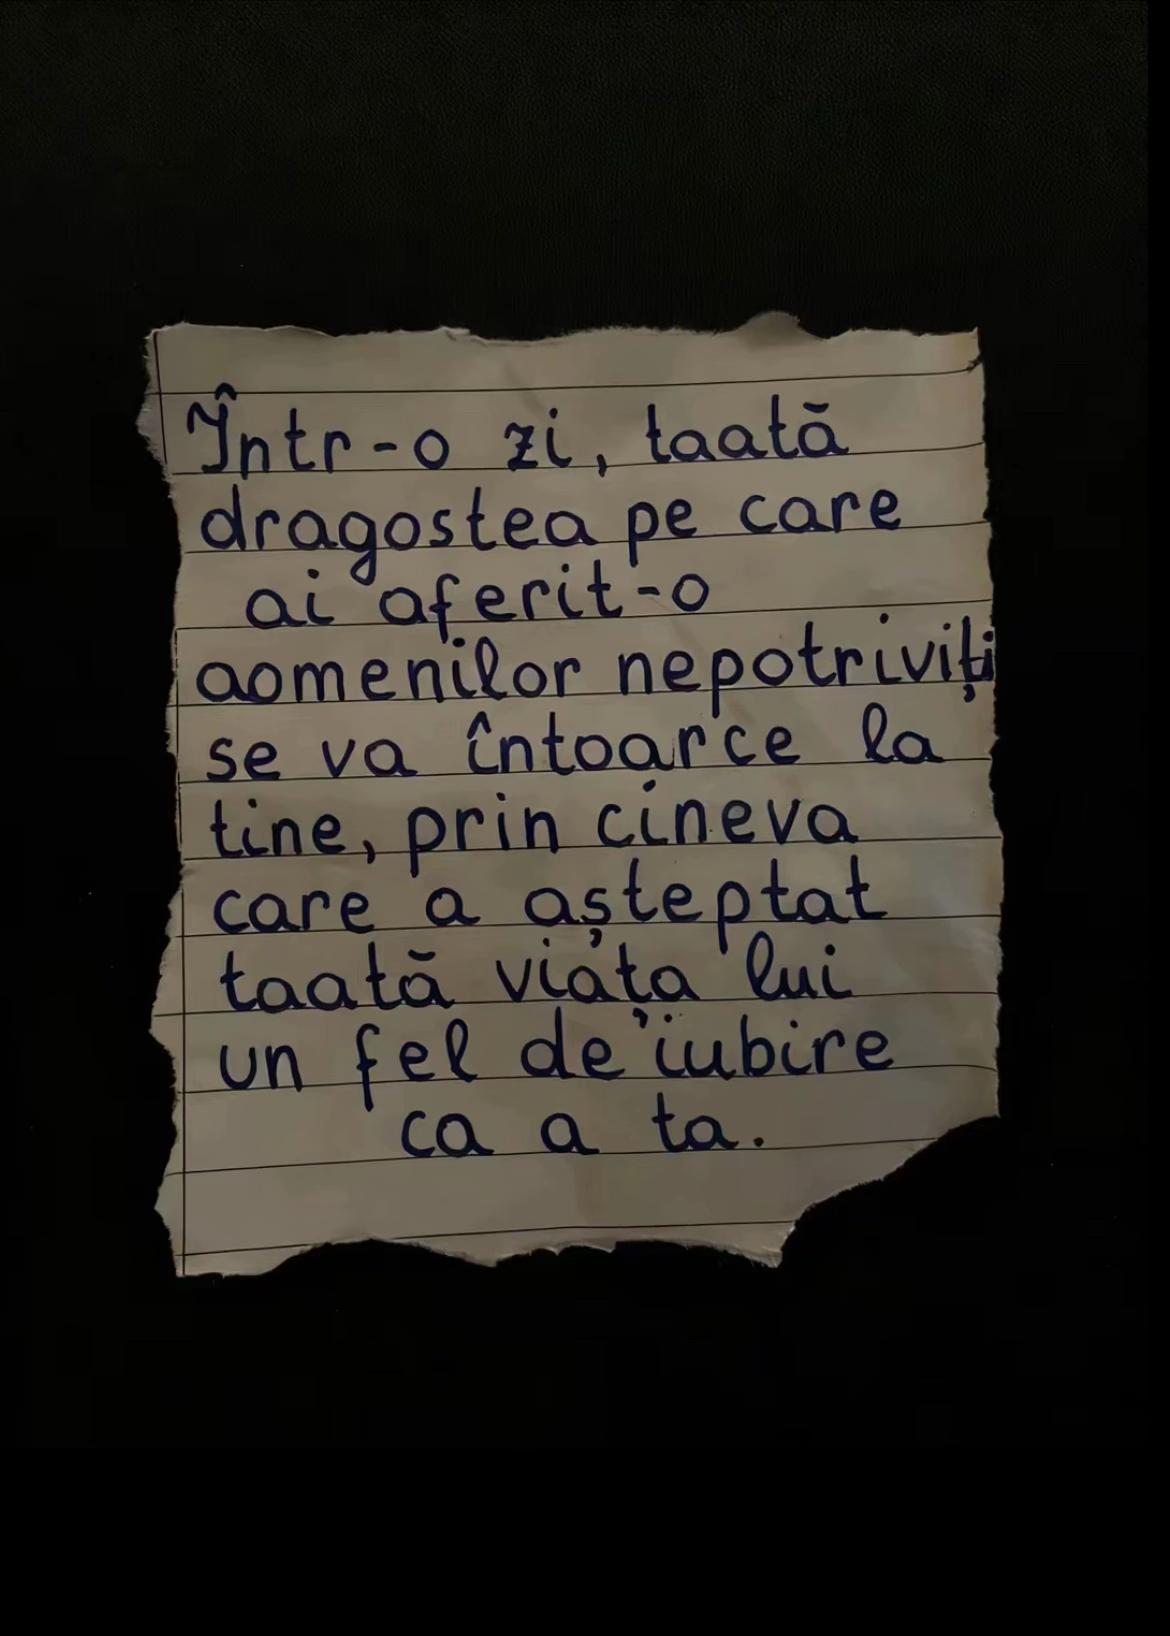 Într-o zi, taată
dragostea pe care
ai aferit-o
aomenilor nepotriviți
se va întoarce la
tine, prin cineva
care a așteptat
taată viața lui
un fel de iubire
ca a ta.